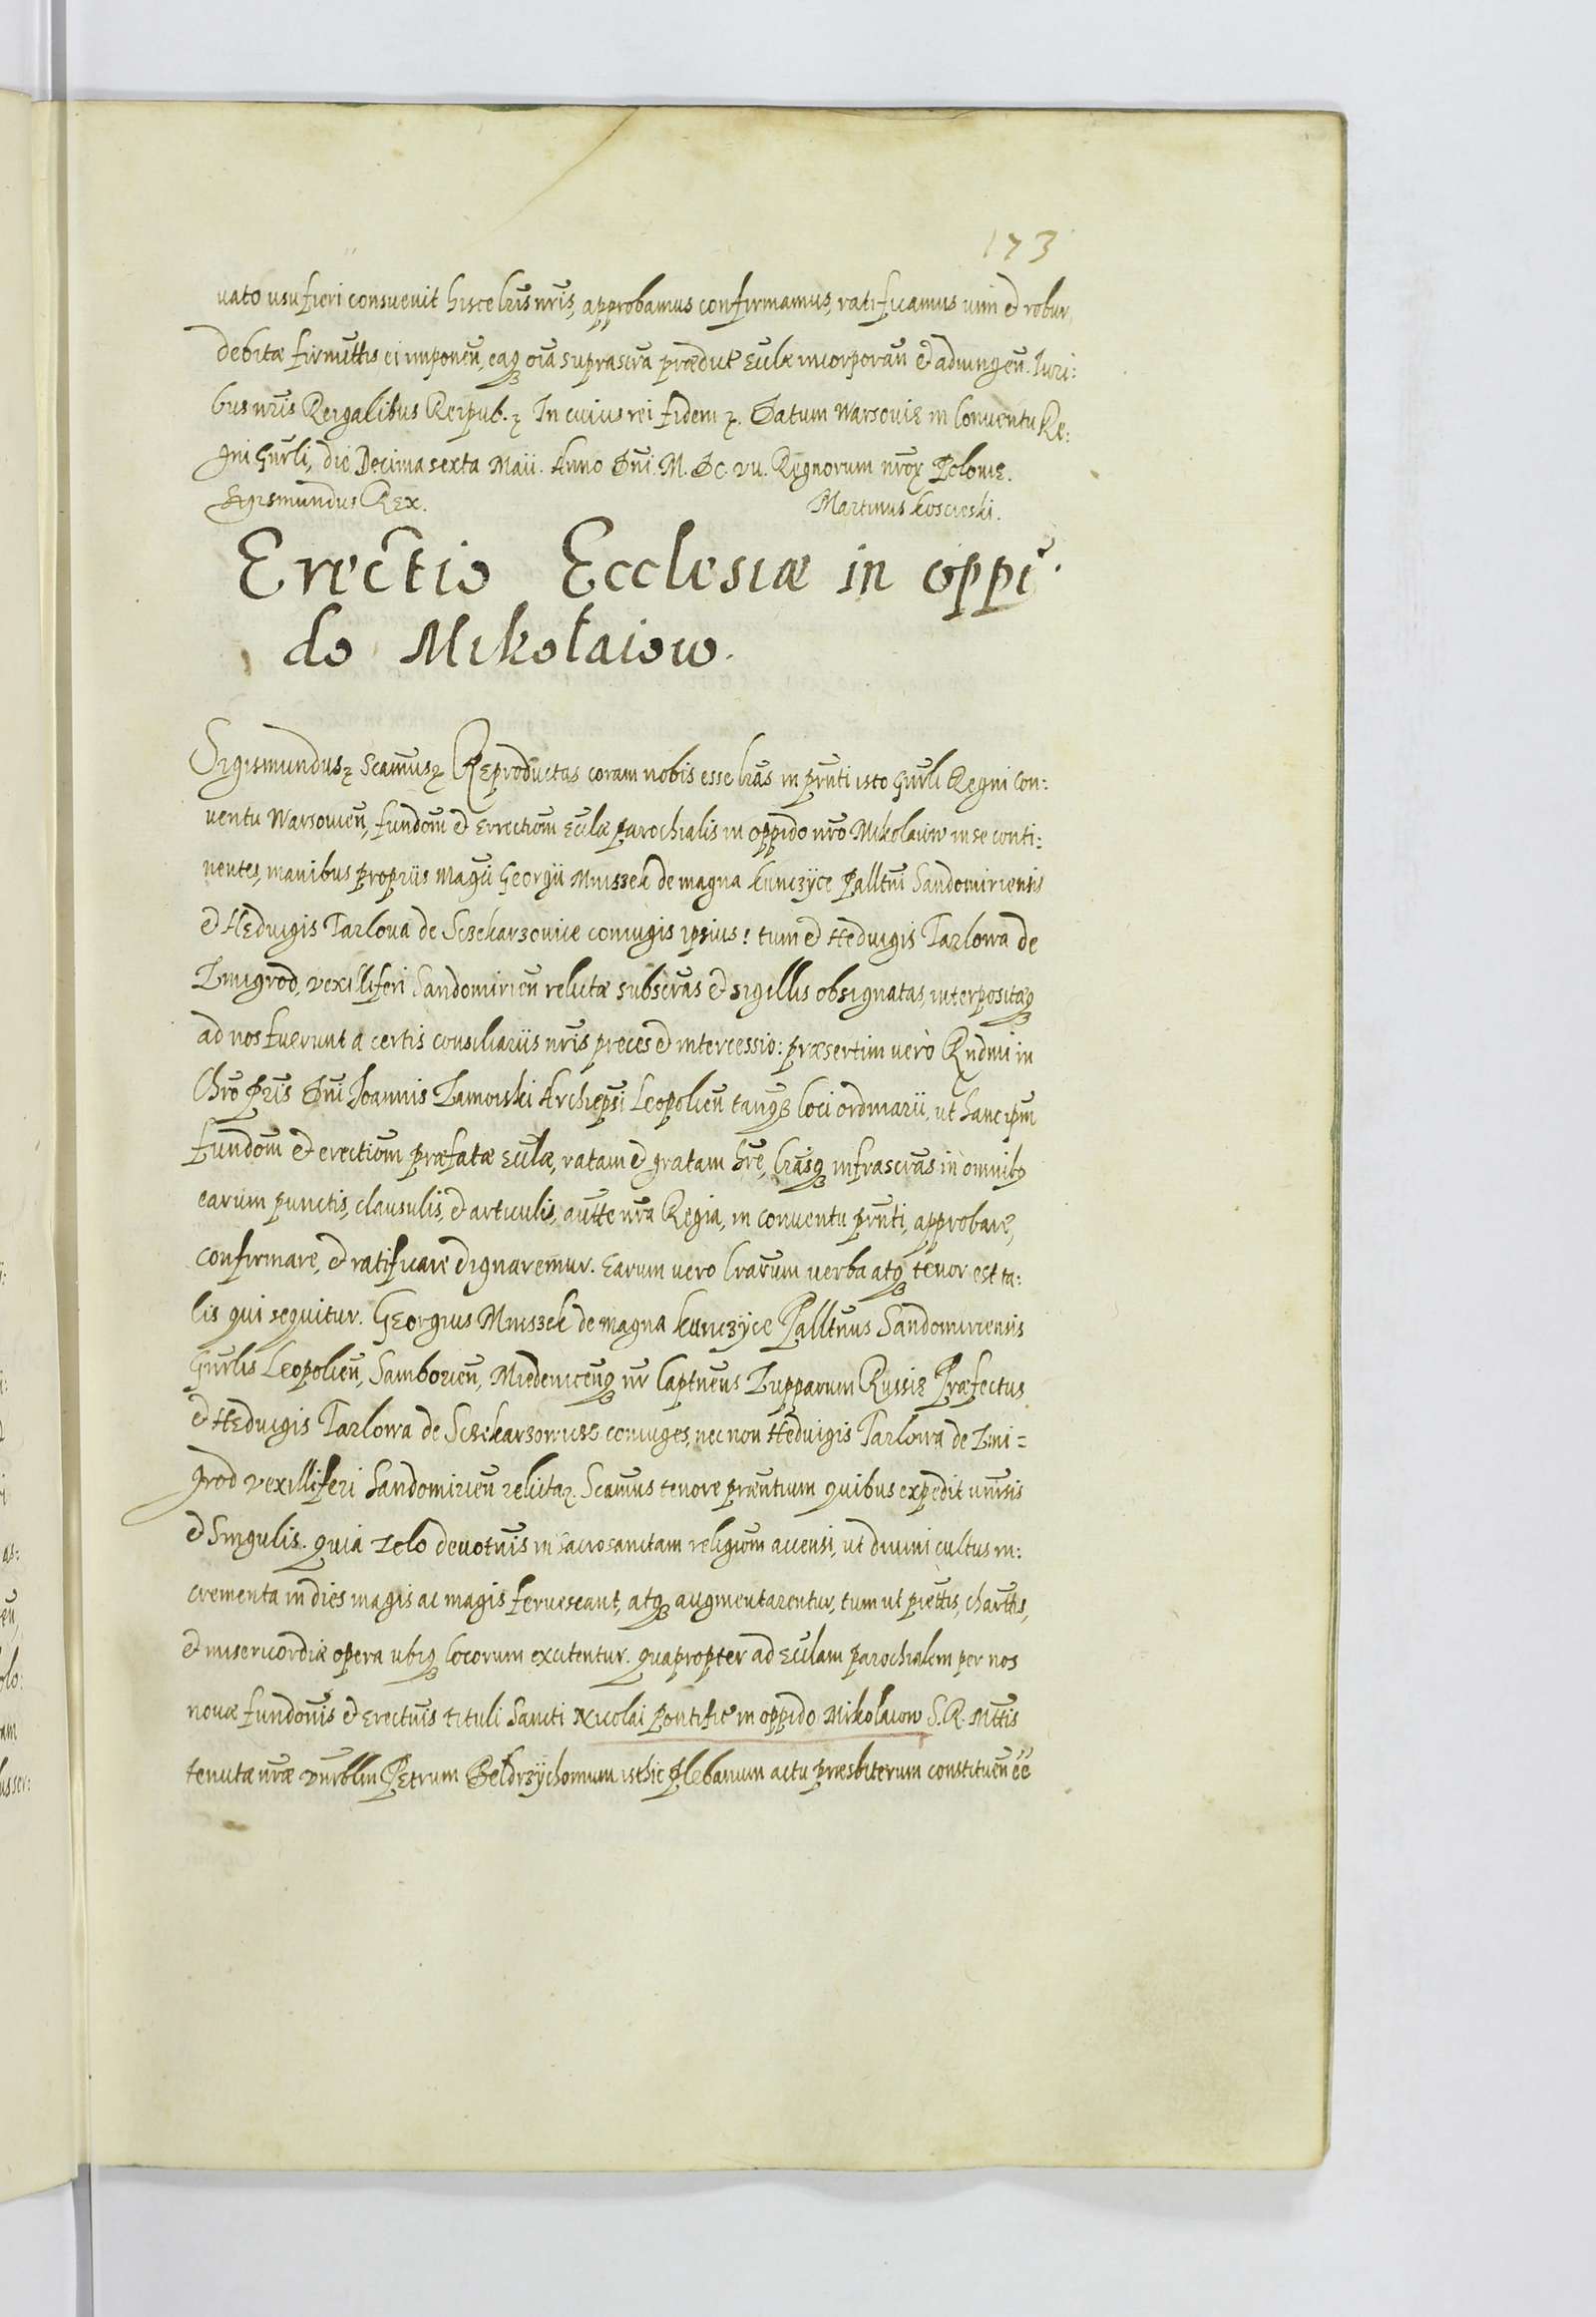 173
vato usu fieri consuevit hisce lr̃is nr̃is, approbamus confirmamus, ratificamus vim et robur
debitæ firmittis ei imponeñ, eaq oĩa suprascrã prædictę Ecclæ incorporañ et adiungeñ. Iuri:
bus nr̃is Regalibus Reipub. In cuius rei fidem. Datum Warsoviæ in Conventu Re:
gni Gnrli, die Decima sexta Maii. Anno Dñi M. DC. VII. Regnorum nrõr Poloniæ.
Sigismundus Rex. Martinus Koscieski.
Erectio Ecclesiæ in oppi
do Mikołaiow.
Sigismundus Scamus Reproductas coram nobis esse lr̃as in prñti isto Gnrli Regni Con:
ventu Warsovieñ, fundom̃ et Errectiom̃ Ecclæ parochialis in oppido nrõ Mikołaiow in se conti:
nentes, manibus propriis Magci Georgii Mniszek de magna Kunczÿce Palltni Sandomiriensis
et Hedvigis Tarlova de Sczekarzovice coniugis ipsius: tum et Hedvigis Tarlowa de
Zmigrod, vexilliferi Sandomirieñ relictæ subscrãs et sigillis obsignatas, interpositæq
ad nos fuerunt a certis consiliariis nr̃is preces et intercessio: præsertim vero Rndmi in
Chrõ Pris Dñi Ioannis Zamoiski Archiepsi Leopolieñ tanq loci ordinarii, ut hanc ipm
fundom̃ et erectiom̃ præfatæ Ecclæ, ratam et gratam hrẽ, lr̃asq infrascrãs in omnibq
earum punctis, clausulis, et articulis, auttte nrã Regia, in conventu prñti, approbare,
confirmare, et ratificare dignaremur. Earum vero lrarũm verba atq tenor est ta:
lis qui sequitur. Georgius Mniszek de magna Kunczÿce Palltnus Sandomiriensis
Gnrlis Leopolieñ, Samborieñ, Mediniceñq nr Captneus Zupparum Russiæ Præfectus
et Hedvigis Tarlowa de Sczekarzowice coniuges, nec non Hedvigis Tarlowa de Zmi=
grod vexilliferi Sandomirieñ relicta. Scamus tenore præntium quibus expedit unĩrsis
et singulis. Quia zelo devotnis in sacrosanctam religiom̃ accensi, ut divini cultus in:
crementa in dies magis ac magis fervescant, atq augmentarentur, tum ut piettis, charttis,
et misericordiæ opera ubiq locorum excitentur. Quapropter ad Ecclam parochialem per nos
novæ fundoñis et Erectnis tituli Sancti Nicolai pontificę in oppido Mikołaiow S. R. Mttis
tenutæ nrãe vnrblm Petrum Bełdrzÿchomum isthic plebanum actu præsbiterum constitueñ ẽẽ